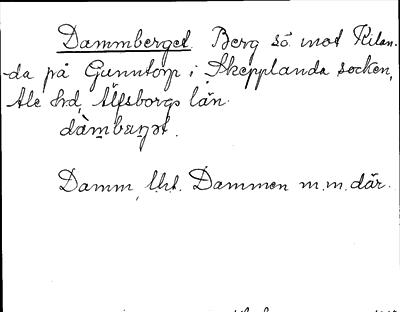 Dammberget. Berg sö mot Kilan-
da på Gunntorp i Skepplanda socken,
Ale hd, Älfsborgs län.
dàmbæŋət.
Damm, lht. Dammen m.m. där.